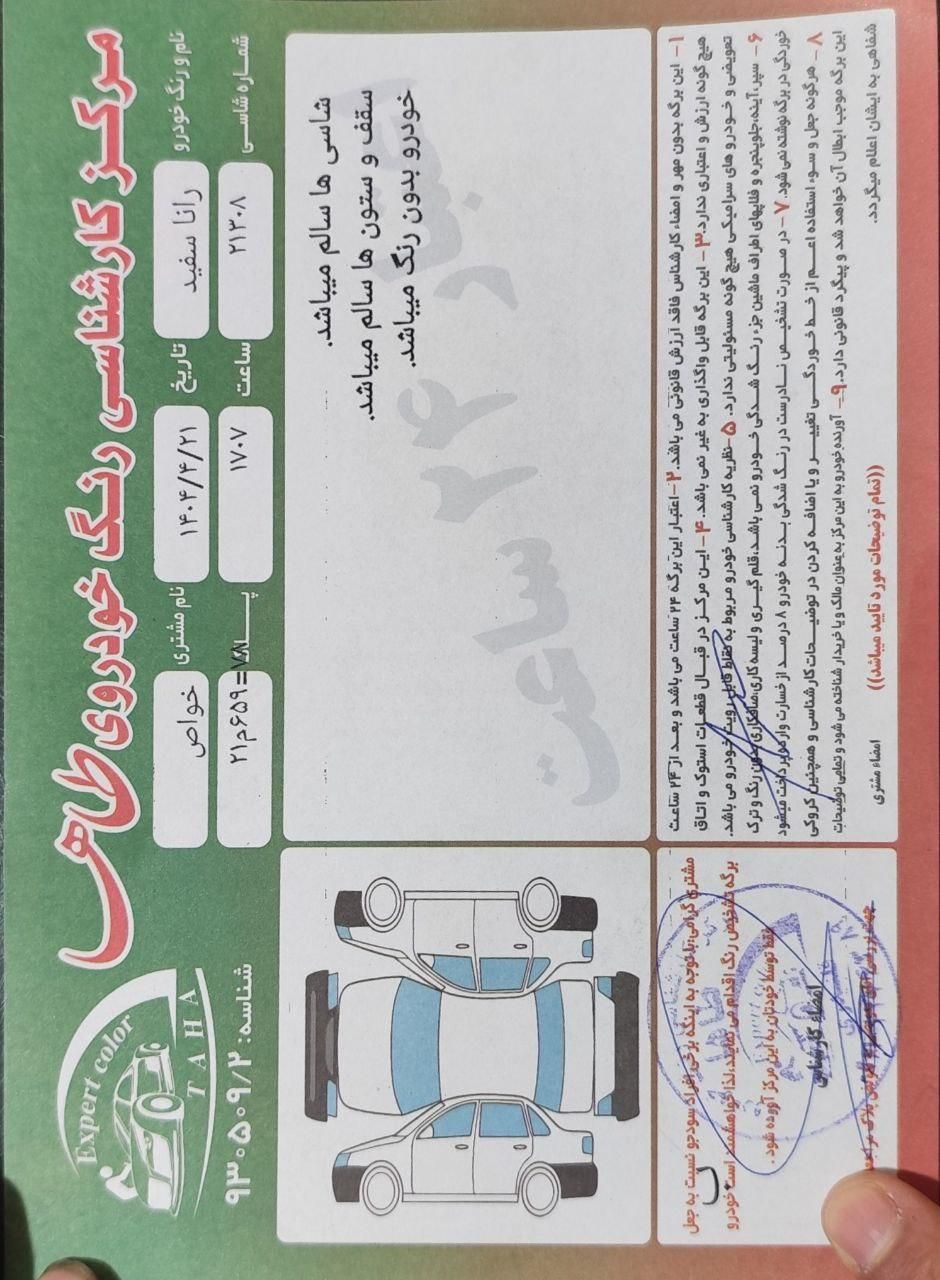 مرکز کارشناسی رنگ خودروی طاها
Expert color
TAHA
شناسه: ۹۳۰۵۰۰۹/۲
نام و رنگ خودرو
رانا سفید
تاریخ
۱۴۰۴/۴/۲۱
نام مشتری
خواص
شماره شاسی
۲۱۳۰۸
ساعت
۱۷۰۷
پلاک
۲۱م۶۵۹=۷۸
شاسی ها سالم میباشد.
سقف و ستون ها سالم میباشد.
خودرو بدون رنگ میباشد.
اعتبار ۲۴ ساعت
۱- این برگه بدون مهر و امضاء کارشناس فاقد ارزش قانونی می باشد. ۲- اعتبار این برگه ۲۴ ساعت می باشد و بعد از ۲۴ ساعت
هیچ گونه ارزش و اعتباری ندارد. ۳- این برگه قابل واگذاری به غیر نمی باشد. ۴- این مرکز در قبال قطعات استوک و اتاق
تعویضی و خودرو های سرامیکی هیچ گونه مسئولیتی ندارد. ۵- نظریه کارشناسی خودرو مربوط به نقاط قابل رویت خودرو می باشد.
۶- سپر، آینه، جلوپنجره و قالپهای اطراف ماشین جزء رنگ شدگی خودرو نمی باشد، قلم گیری و لیسه کاری، صافکاری بدون رنگ و ترک
خوردگی در برگه نوشته نمی شود. ۷- در صورت تشخیص نادرست در رنگ شدگی بدنه خودرو ۸ درصد از خسارت وارده پرداخت میشود
۸- هرگونه جعل و سوء استفاده اعم از خط خوردگی تغییر و یا اضافه کردن در توضیحات کارشناسی و همچنین کروکی
این برگه موجب ابطال آن خواهد شد و پیگرد قانونی دارد. ۹- آورنده خودرو به این مرکز به عنوان مالک و یا خریدار شناخته می شود و تمامی توضیحات
شفاهی به ایشان اعلام میگردد.
((تمام توضیحات مورد تایید میباشد))
امضاء مشتری
مشتری گرامی: باتوجه به اینکه برخی افراد سودجو نسبت به جعل
برگه تشخیص رنگ اقدام می نمایند، لذا خواهشمند است خودرو
فقط توسط خودتان به این مرکز آورده شود.
امضاء کارشناس